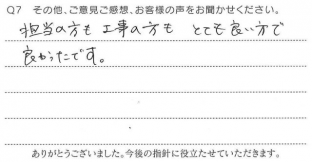 Q7 その他、ご意見ご感想、お客様の声をお聞かせください。
担当の方も工事の方も とても良い方で
良かったです。
ありがとうございました。今後の指針に役立たせていただきます。